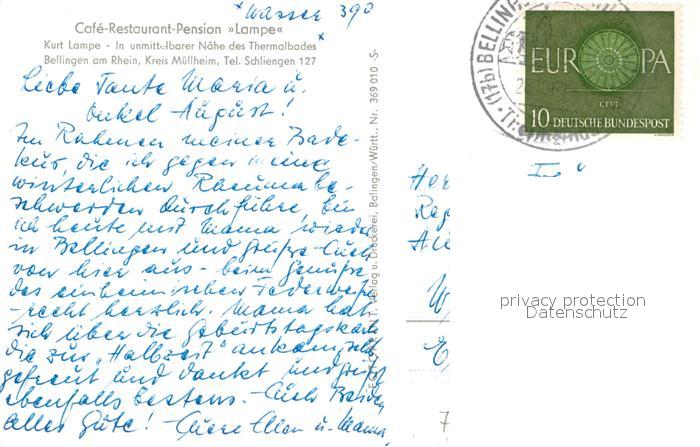 *Wasser 39°
Café-Restaurant-Pension »Lampe«
Kurt Lampe - In unmittelbarer Nähe des Thermalbades*
Bellingen am Rhein, Kreis Müllheim, Tel. Schliengen 127
Liebe Tante Maria u.
Onkel August!
Im Rahmen meiner Bade-
kur, die ich gegen meine
winterlichen Rheumabe-
schwerden durchführe, bin
ich heute mit Mama wieder
in Bellingen und grüße Euch
von hier aus - beim Genuße
des einheimischen Federweiße
- recht herzlich. Mama hat
sich über die Geburtstagskarte
die zur "Halbzeit" ankam, sehr
gefreut und dankt und grüßt
ebenfalls bestens. - Euch Beiden
alles Gute! - Eure Ellen u. Mama
Verlag u. Druckerei, Balingen/Württ., Nr. 369 010 -S-
(17b) BELLIN
EUROPA
CEPT
10 DEUTSCHE BUNDESPOST
privacy protection
Datenschutz